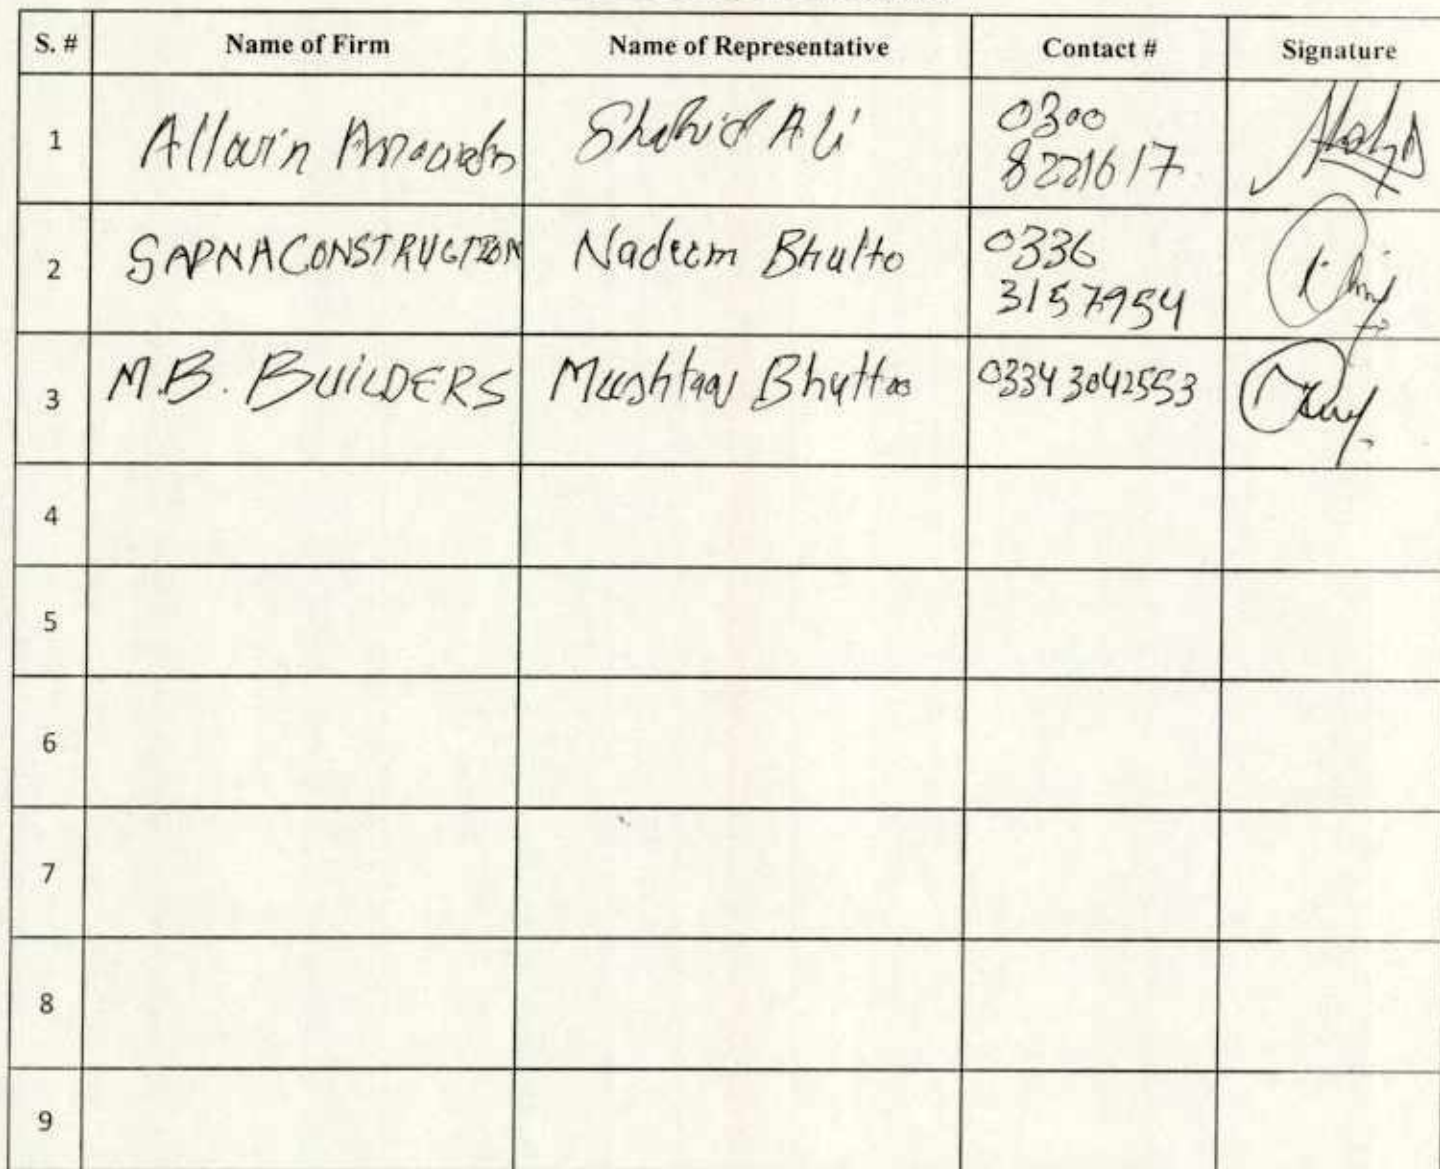 S. # Name of Firm Name of Representative Contact # Signature
1 Allawin Shahid Ali 0300
8221617
2 SAPNA CONSTRUCTION Nadeem Bhutto 0336
3157954
3 M.B. BUILDERS Mushtaq Bhutto 03343042553
4
5
6
7
8
9